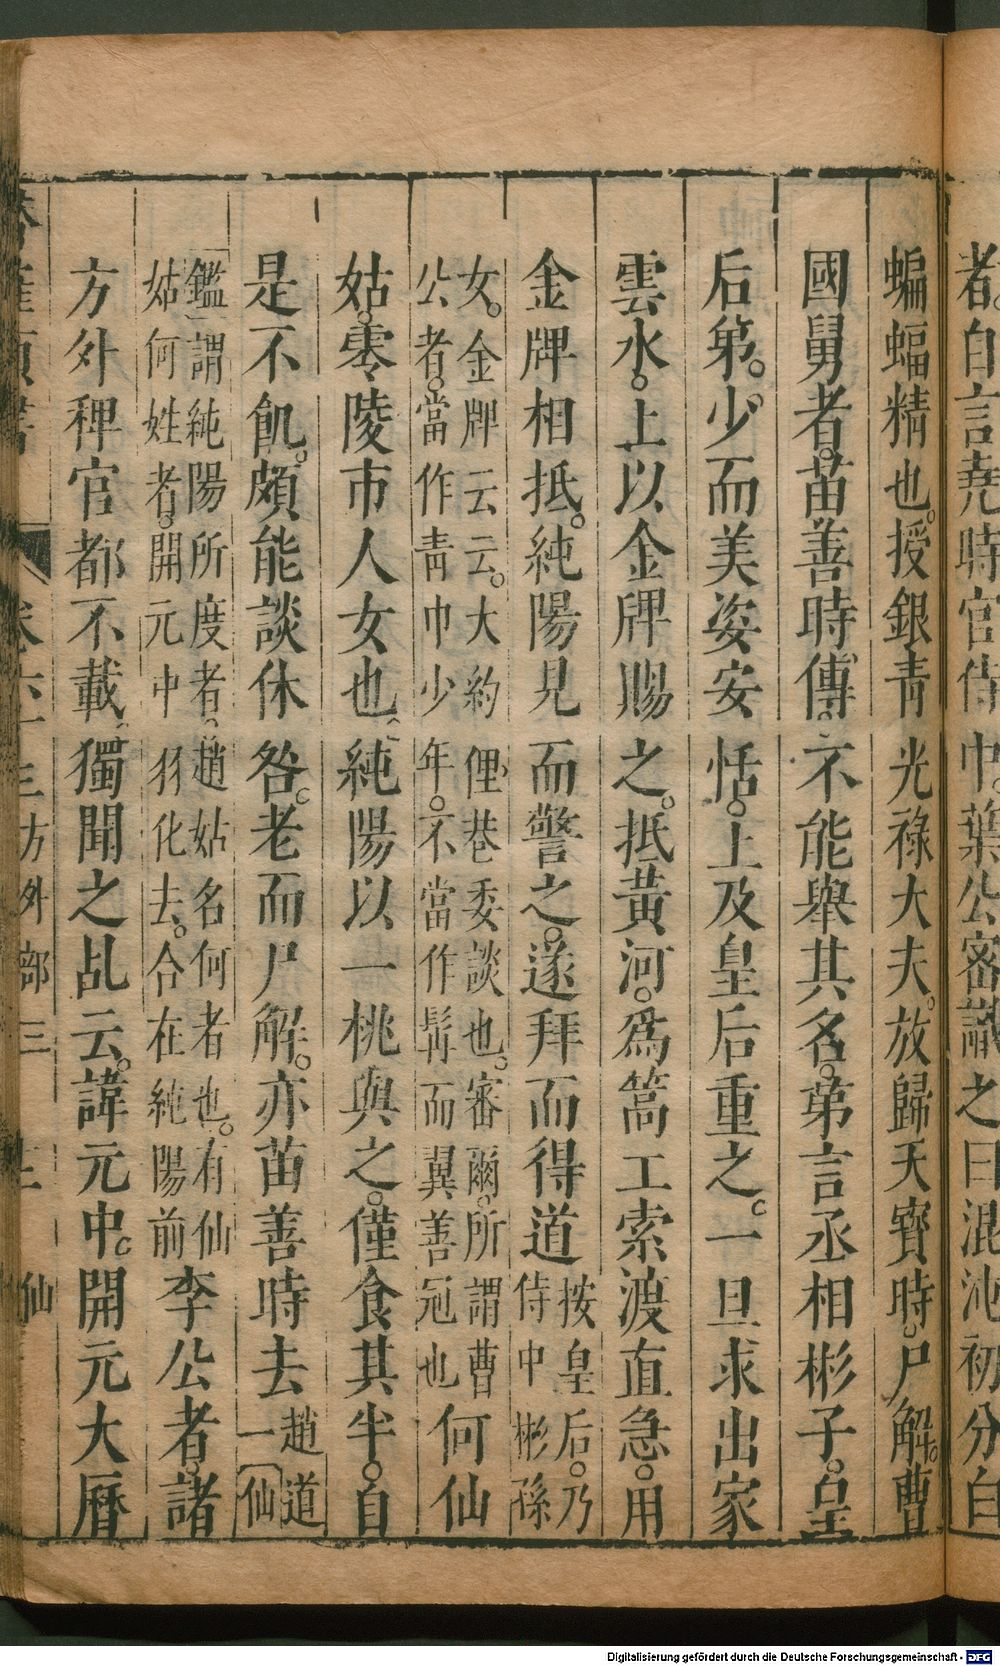 者自言堯時官侍中葉公密識之曰混沌初分白
蝙蝠精也授銀青光祿大夫放歸天寳時尸解曹
國舅者苗善時傳不能舉其名第言丞相彬子皇
后第少而美姿安恬上及皇后重之一旦求出家
雲水上以金牌賜之抵黃河爲篙工索渡直急用
金牌相抵純陽見而警之遂拜而得道按皇后乃
侍中彬孫
女金牌云云大約俚巷委談也審爾所謂曹
公者當作靑巾少年不當作髯而翼善冠也何仙
姑零陵市人女也純陽以一桃與之僅食其半自
是不飢頗能談休咎老而尸解亦苗善時去趙道
一仙
鑑謂純陽所度者趙姑名何者也有仙
姑何姓者開元中羽化去合在純陽前李公者諸
方外稗官都不載獨聞之乩云諱元中開元大曆
卷六十三方外部三 仙
Digitalisierung gefördert durch die Deutsche Forschungsgemeinschaft - DFG